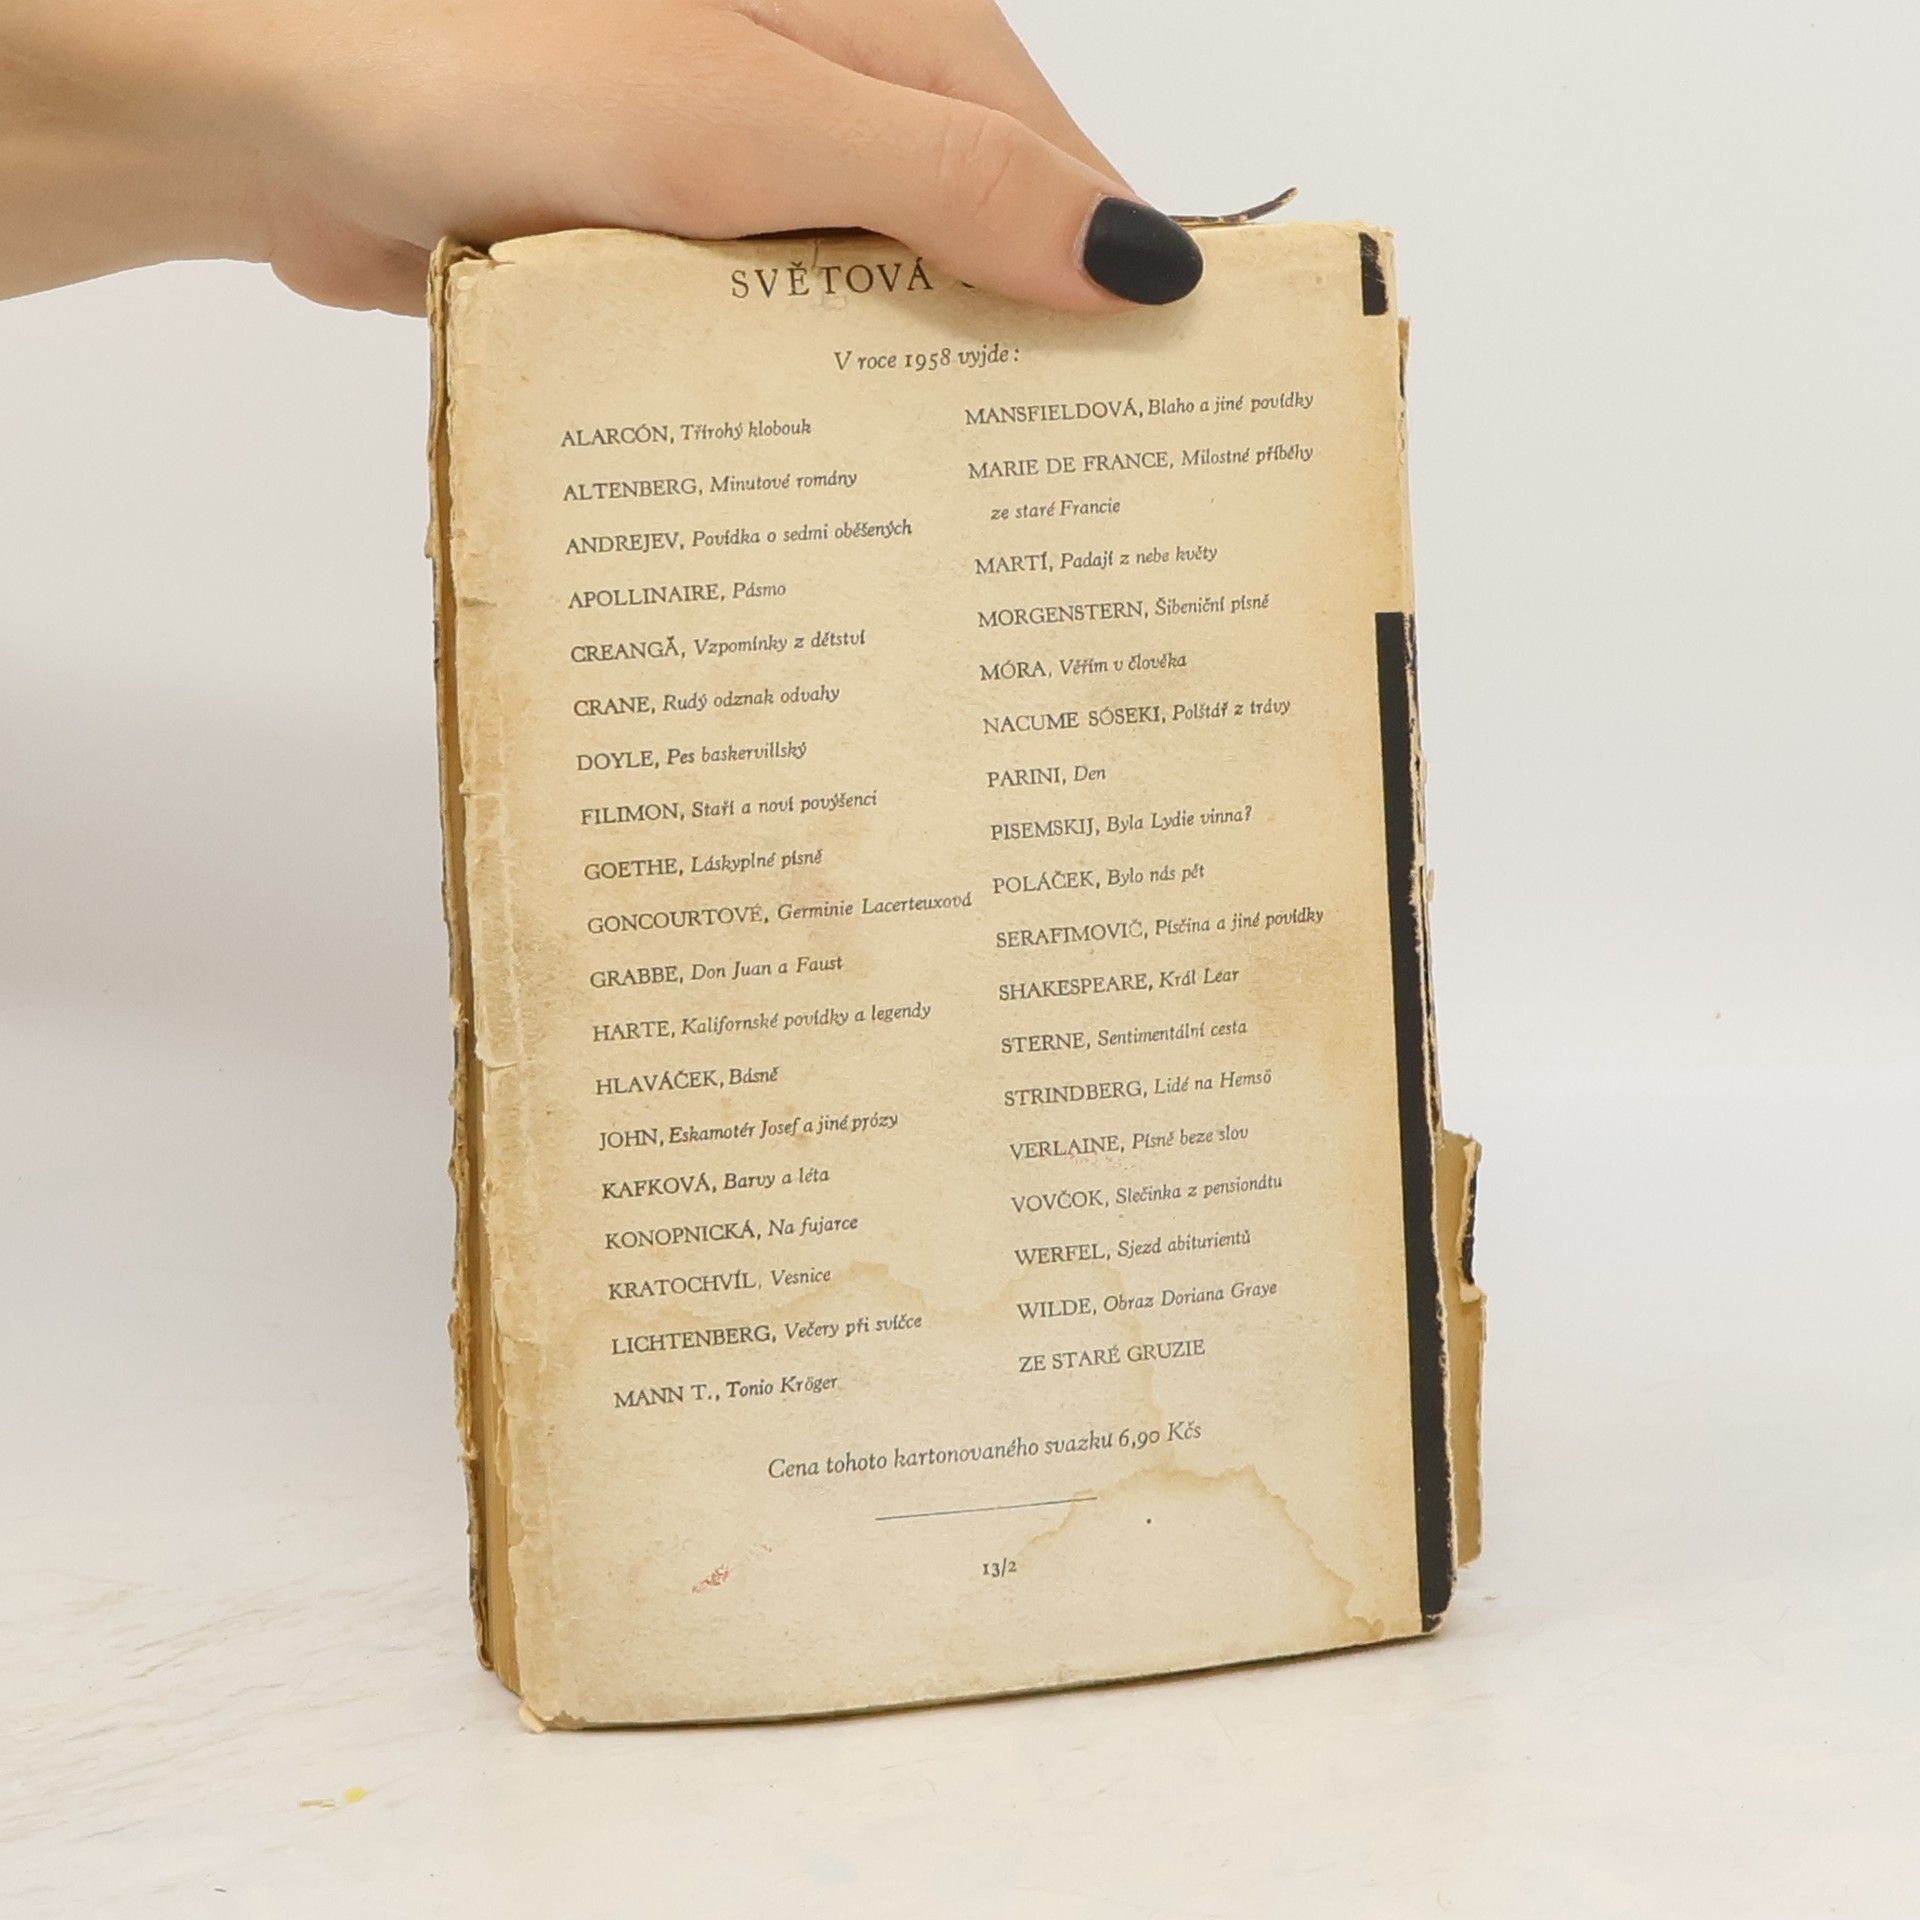 SVĚTOVÁ
V roce 1958 vyjde:
ALARCÓN, Třírohý klobouk
ALTENBERG, Minutové romány
ANDREJEV, Povídka o sedmi oběšených
APOLLINAIRE, Pásmo
CREANGĂ, Vzpomínky z dětství
CRANE, Rudý odznak odvahy
DOYLE, Pes baskervillský
FILIMON, Staří a noví povýšenci
GOETHE, Láskyplné písně
GONCOURTOVÉ, Germinie Lacerteuxová
GRABBE, Don Juan a Faust
HARTE, Kalifornské povídky a legendy
HLAVÁČEK, Básně
JOHN, Eskamotér Josef a jiné prózy
KAFKOVÁ, Barvy a léta
KONOPNICKÁ, Na fujarce
KRATOCHVÍL, Vesnice
LICHTENBERG, Večery při svíčce
MANN T., Tonio Kröger
MANSFIELDOVÁ, Blaho a jiné povídky
MARIE DE FRANCE, Milostné příběhy
ze staré Francie
MARTÍ, Padají z nebe květy
MORGENSTERN, Šibeniční písně
MÓRA, Věřím v člověka
NACUME SÓSEKI, Polštář z trávy
PARINI, Den
PISEMSKIJ, Byla Lydie vinna?
POLÁČEK, Bylo nás pět
SERAFIMOVIČ, Písčina a jiné povídky
SHAKESPEARE, Král Lear
STERNE, Sentimentální cesta
STRINDBERG, Lidé na Hemsö
VERLAINE, Písně beze slov
VOVČOK, Slečinka z pensionátu
WERFEL, Sjezd abiturientů
WILDE, Obraz Doriana Graye
ZE STARÉ GRUZIE
Cena tohoto kartonovaného svazku 6,90 Kčs
13/2